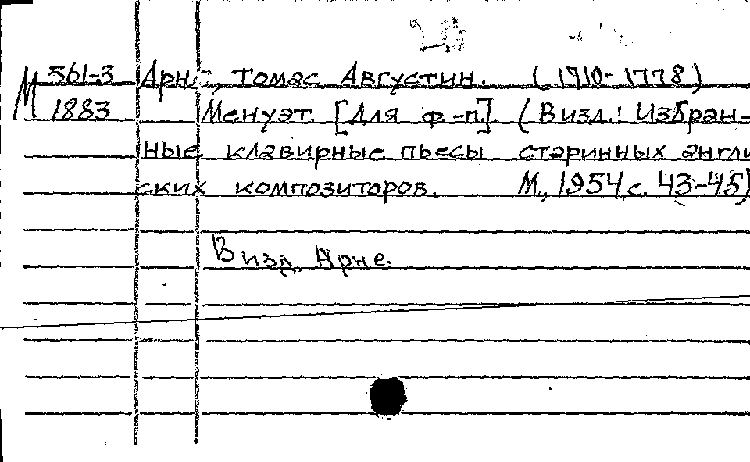 М 561-3 Арне, Томас Августин. (1710-1778)
1883 Менуэт. [Для ф-п]. (В изд.: Избран-
ные клавирные пьесы старинных англи
ских композиторов. М., 1954 с. 43-45)
В изд. Арне.